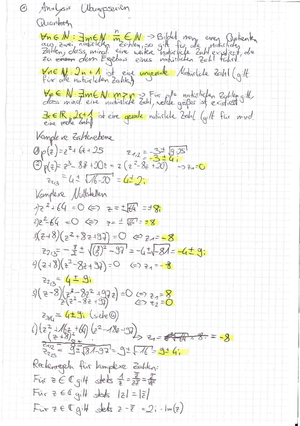 Analysis Übungsserien
Quantoren
∀n∈ℕ ∃m∈ℕ n/m ∈ ℕ → Bildet man einen Quotienten
aus zwei natürlichen Zahlen, so gilt für alle natürlichen
Zahlen, dass mind. eine weitere natürliche Zahl existiert, die
zu einem Ergebnis einer natürlichen Zahl führt.
∀n∈ℕ 2n+1 ist eine ungerade natürliche Zahl (gilt
für alle natürlichen Zahlen)
∀n∈ℕ ∃m∈ℕ m>n → Für alle natürlichen Zahlen gilt,
dass mind. eine natürliche Zahl, welche größer ist existiert
ist eine gerade natürliche Zahl (gilt für mind.
eine reelle Zahl)
Komplexe Zahlenebene
① p(z) = z²+6z+25 z₁,₂ = -3 ± √9-25
= -3 ± 4i
② p(z) = z³-8z²+20z = z(z²-8z+20) → z₁=0
z₂,₃ = 4 ± √16-20 = 4 ± 2i
Komplexe Nullstellen
1) z²+64 = 0 ⟺ z = ±√-64 = ±8i
2) z²-64 = 0 ⟺ z = ±√64 = ±8
3) (z+8)(z²+8z+97) = 0 ⟺ z₁ = -8
4) (z+8)(z²-8z+97) = 0 ⟺ z₁ = -8
z₂,₃ = 4 ± 9i
5) (z-8)(z³-8z²+97z) = 0 ⟺ z₁ = 8
z(z²-8z+97) ⟺ z₂ = 0
z₃,₄ = 4 ± 9i (siehe 4)
6) (z²+16z+64)(z²-18z+97)
(z+8)² → z₁ = -8
= 9 ± √81-97 = 9 ± √-16 = 9 ± 4i
Rechenregeln für komplexe Zahlen:
Für z∈ℂ gilt stets
Für z∈ℂ gilt stets |z| = |z̄|
Für z∈ℂ gilt stets z - z̄ = 2i · Im(z)